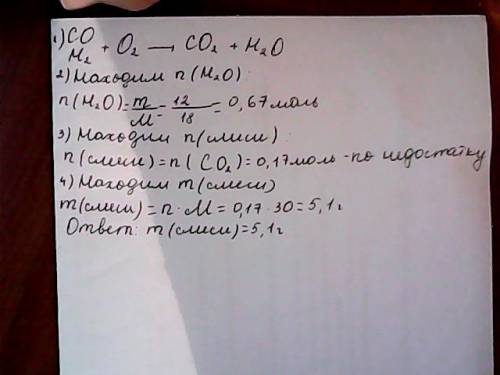 1) CO
H₂ + O₂ → CO₂ + H₂O
2) Находим n(H₂O):
n(H₂O) = m/M = 12/18 = 0,67 моль
3) Находим n(смеси):
n(смеси) = n(CO₂) = 0,17 моль - по недостатку
4) Находим m(смеси)
m(смеси) = n · M = 0,17 · 30 = 5,1 г
Ответ: m(смеси) = 5,1 г